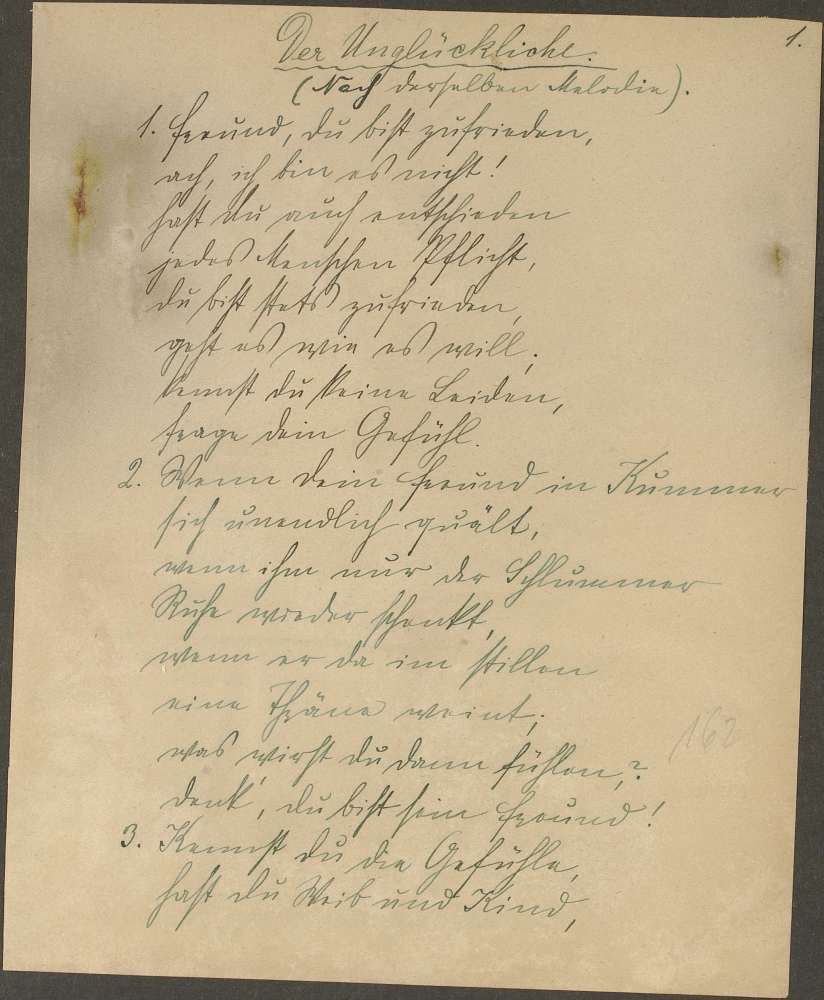 1.
Der Unglückliche.
(Nach derselben Melodie).
1. Freund, du bist zufrieden,
ach, ich bin es nicht!
hast du auch entschieden
jedes Menschen Pflicht,
du bist stets zufrieden,
geht es wie es will,
kennst du keine Leiden,
frage dein Gefühl.
2. Wenn dein Freund in Kummer
sich unendlich quält,
wenn ihm nur der Schlummer
Ruhe wieder schenkt,
wenn er da im stillen
eine Thräne weint,
was wirst du dann fühlen,?
denk', du bist sein Freund!
162
3. Kennst du die Gefühle,
hast du Weib und Kind,